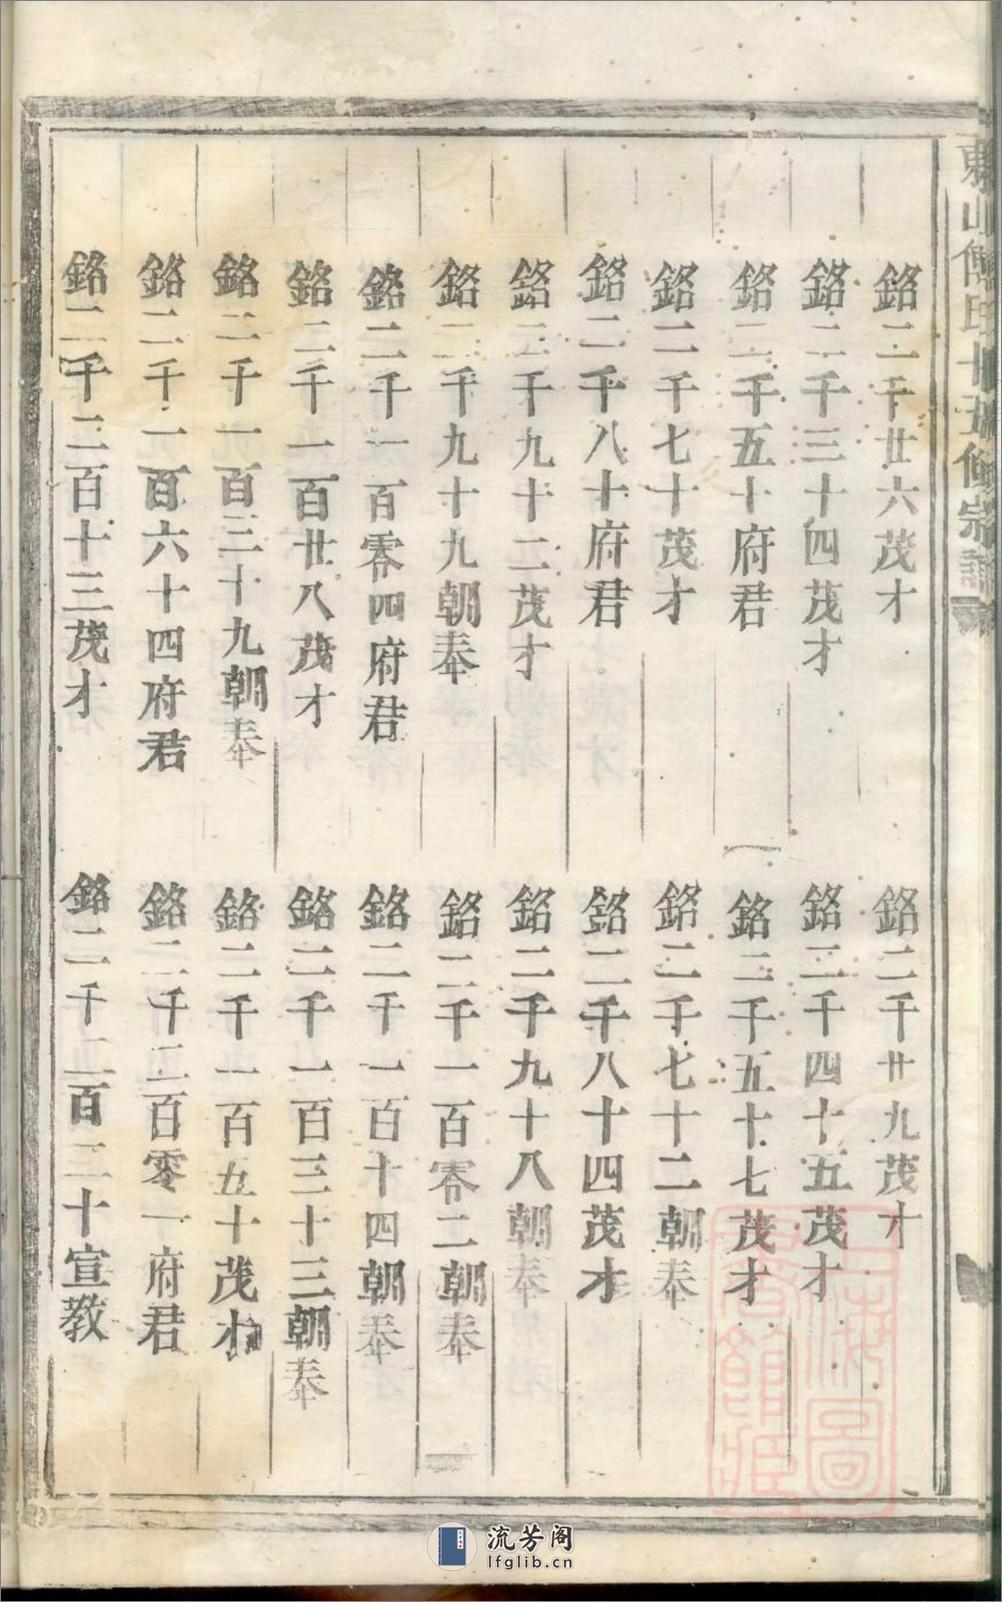 東山傅氏十五修宗譜
銘二千廿六茂才
銘二千廿九茂才
銘二千三十四茂才
銘二千四十五茂才
銘二千五十府君
銘二千五十七茂才
銘二千七十茂才
銘二千七十二朝奉
銘二千八十府君
銘二千八十四茂才
銘二千九十二茂才
銘二千九十八朝奉
銘二千九十九朝奉
銘二千一百零二朝奉
銘二千一百零四府君
銘二千一百十四朝奉
銘二千一百廿八茂才
銘二千一百三十三朝奉
銘二千一百三十九朝奉
銘二千一百五十茂才
銘二千一百六十四府君
銘二千二百零一府君
銘二千二百十三茂才
銘二千二百二十宣教
上海圖
書館藏
流芳阁
lfglib.cn